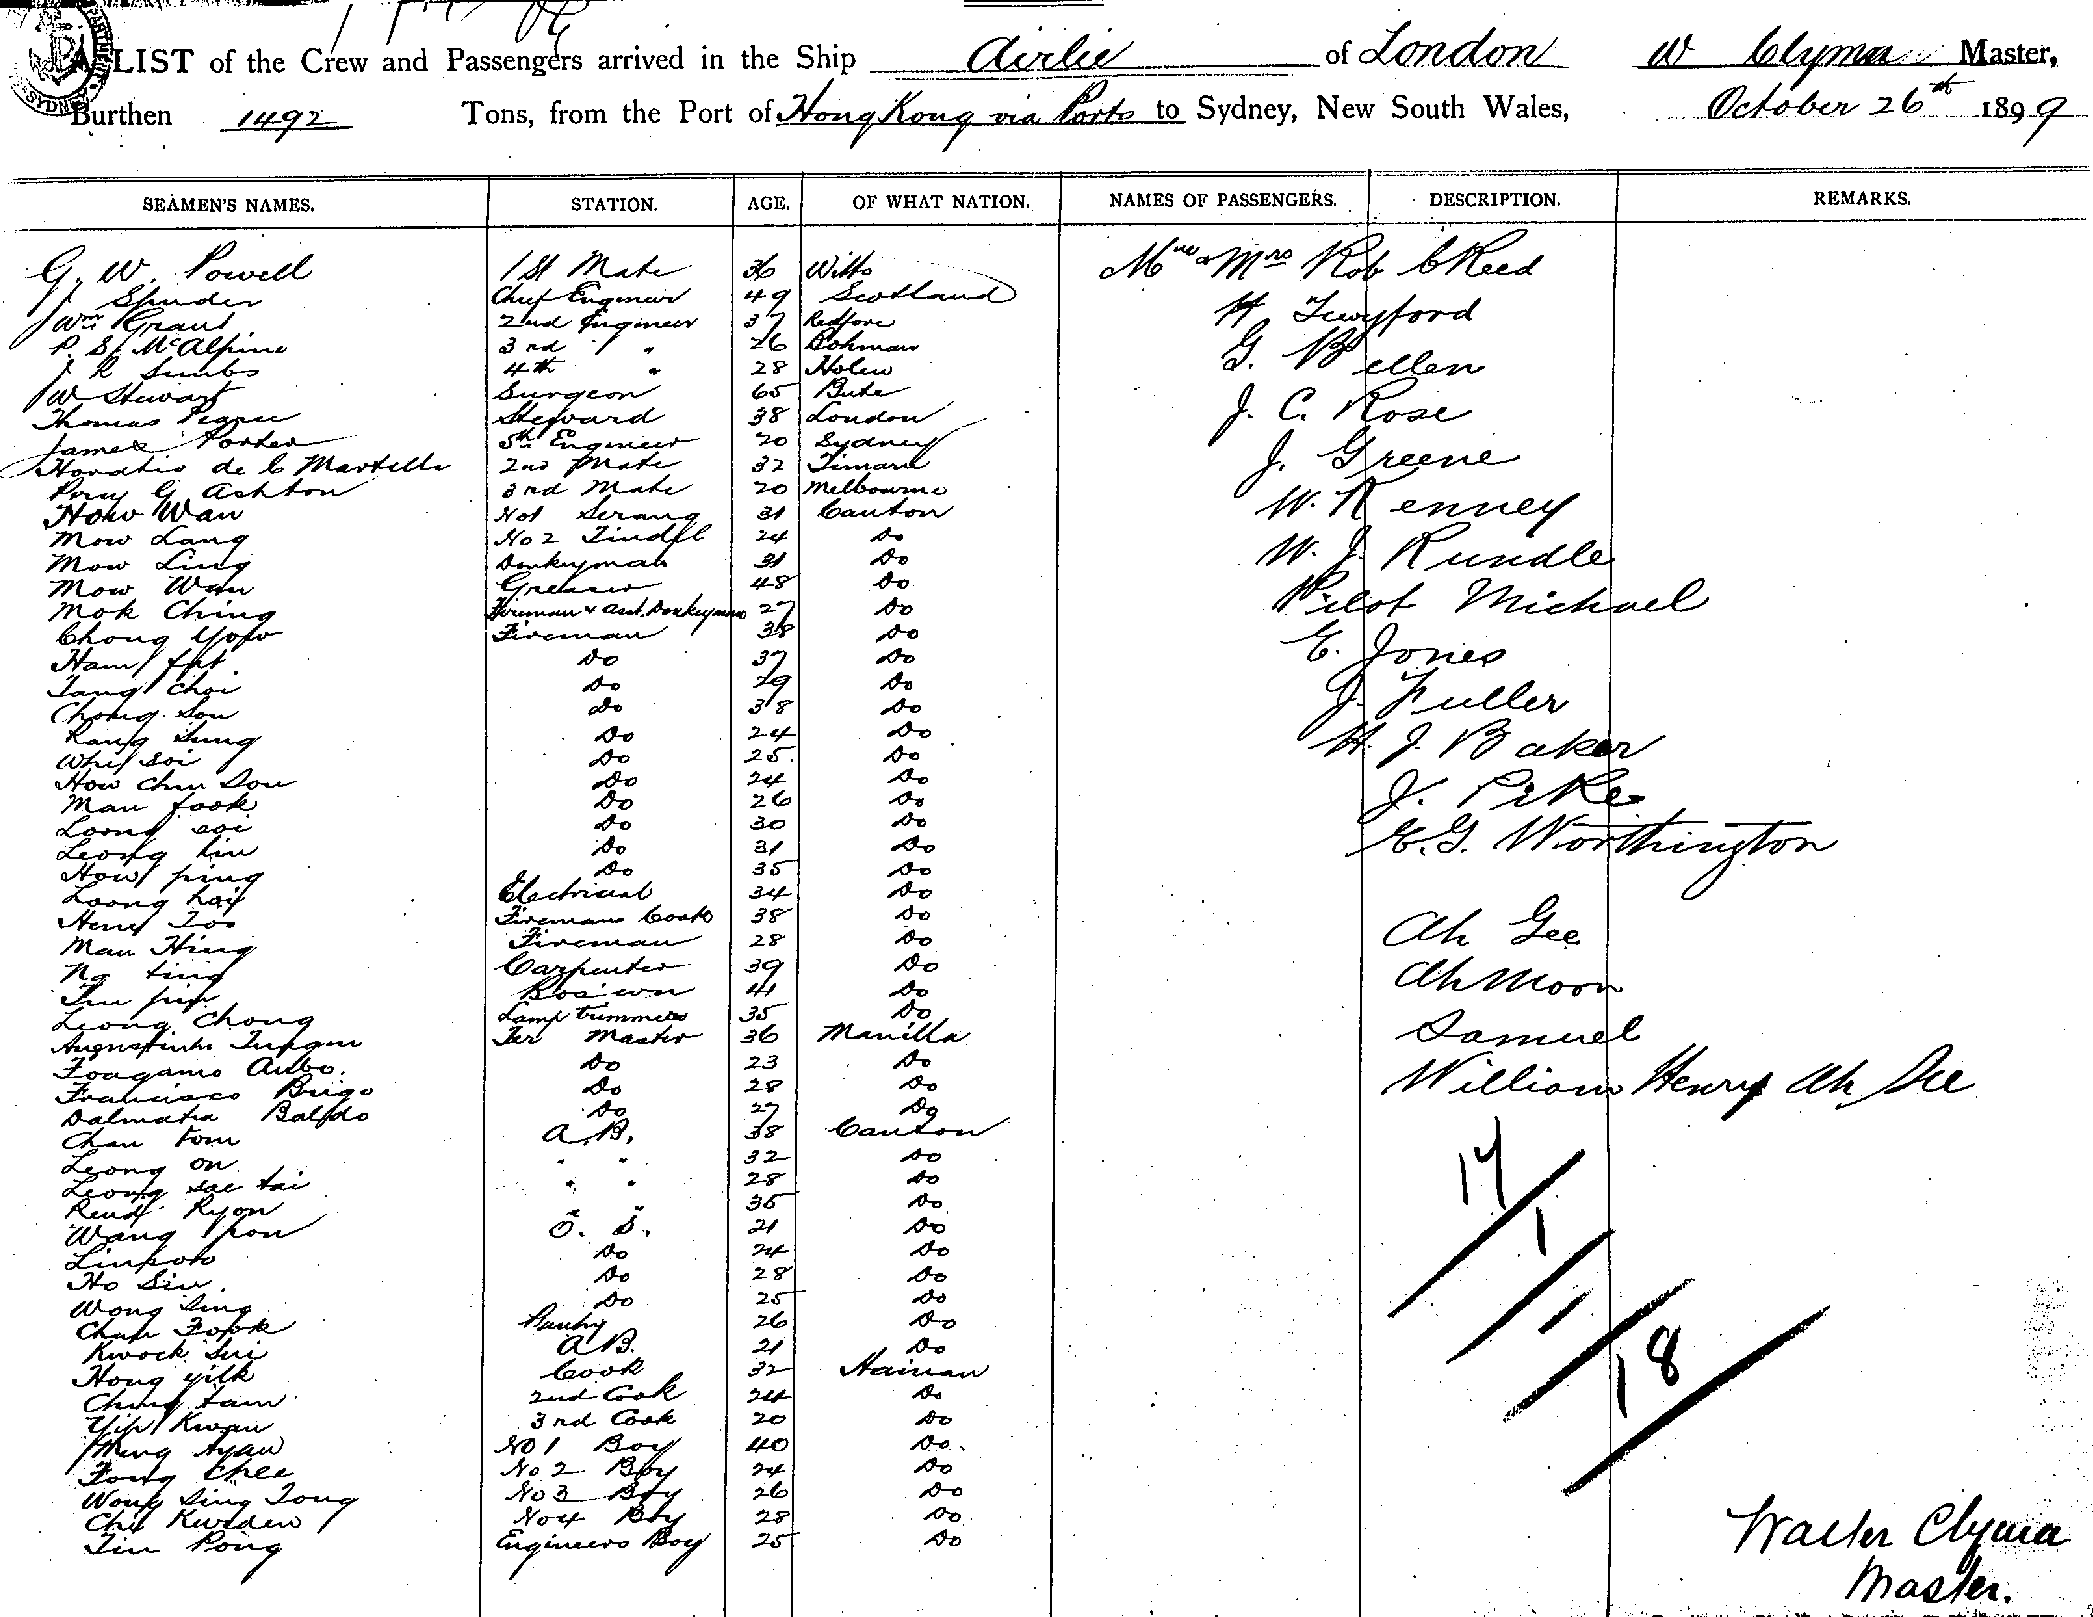 A LIST of the Crew and Passengers arrived in the Ship Airlie of London W Clyma Master,
Burthen 1492 Tons, from the Port of Hong Kong via Ports to Sydney, New South Wales, October 26th 1899
SEAMEN'S NAMES. STATION. AGE. OF WHAT NATION. NAMES OF PASSENGERS. DESCRIPTION. REMARKS.
G. W. Powell 1st Mate 36 Witts Mr & Mrs Rob C Reed
J. Chief Engineer 49 Scotland
Wm Grant 2nd Engineer 37 H Twyford
P. S. McAlpine 3rd " " 26 G. Bellen
J R 4th " 28
W Stewart Surgeon 65 Bute J. C. Rose
Thomas Steward 38 London
James Porter 5th Engineer 20 Sydney J. Greene
Horatio de C Martelli 2nd Mate 32 Timaru
Percy G Ashton 3rd Mate 20 Melbourne W. Kenney
How Wan No 1 Serang 31 Canton
Mow Lang No 2 Tindal 24 Do W. J. Rundle
Mow Ling Donkeyman 31 Do
Mow Wan Greaser 48 Do Pilot Michael
Mok Ching Fireman & Asst. Donkeyman 27 Do
Chong Yow Fireman 38 Do E. Jones
Ham fat Do 37 Do
Tang Choi Do 29 Do J. Fuller
Chong Sou Do 38 Do
Kang Sung Do 24 Do H. J. Baker
Soi Do 25 Do
How Chu Sou Do 24 Do J. Pike
Man fook Do 26 Do
Loong soi Do 30 Do E. G. Worthington
Leong Do 31 Do
How ping Do 35 Do
Loong hoy Electrical 34 Do
Firemans Cook 38 Do Ah Gee
Man Hing Fireman 28 Do
Ng ting Carpenter 39 Do Ah Moon
Bos'wn 41 Do
Leong Chong Lamp trimmer 35 Do Samuel
Master 36 Manilla
Do 23 Do William Henry Ah See
Francisco Do 28 Do
Dalmatia Do 27 Do
Chan tom A.B. 38 Canton
Leong on " " 32 Do 17
Leong sae tai " " 28 Do
Ryon " " 35 Do 1
Wang pon O. S. 21 Do
Do 24 Do
Ho Siu Do 28 Do 1
Wong Sing Do 25 Do
Chan Fook Pantry 26 Do 18
Kwock Sui A.B. 21 Do
Hong yilk Cook 32 Hainan
Chung tam 2nd Cook 24 Do
Yip Kwan 3rd Cook 20 Do
Ming Ayau No 1 Boy 40 Do.
Fong Chee No 2 Boy 24 Do
Wong Sing Tong No 3 Boy 26 Do
No 4 Boy 28 Do
Pong Engineers Boy 25 Do
Walter Clyma
Master.